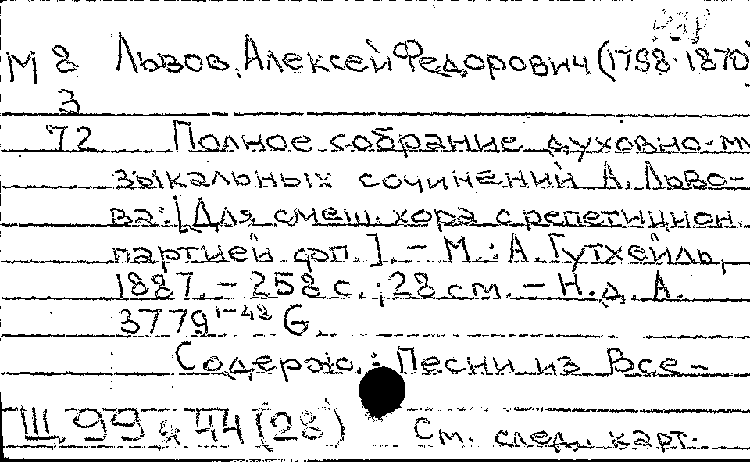 М 8 Львов, Алексей Федорович (1798-1870)
3
72 Полное собрание духовно-му
зыкальных сочинений А. Льво-
ва: [Для смеш. хора с репетицион.
партией фп.]. - М.: А. Гутхейль,
1887. - 258 с.; 28 см. - Н.д. А.
3779 1-42 G.
Содерж.: Песни из Все-
Ш. 99 44 (28) См. след. карт.